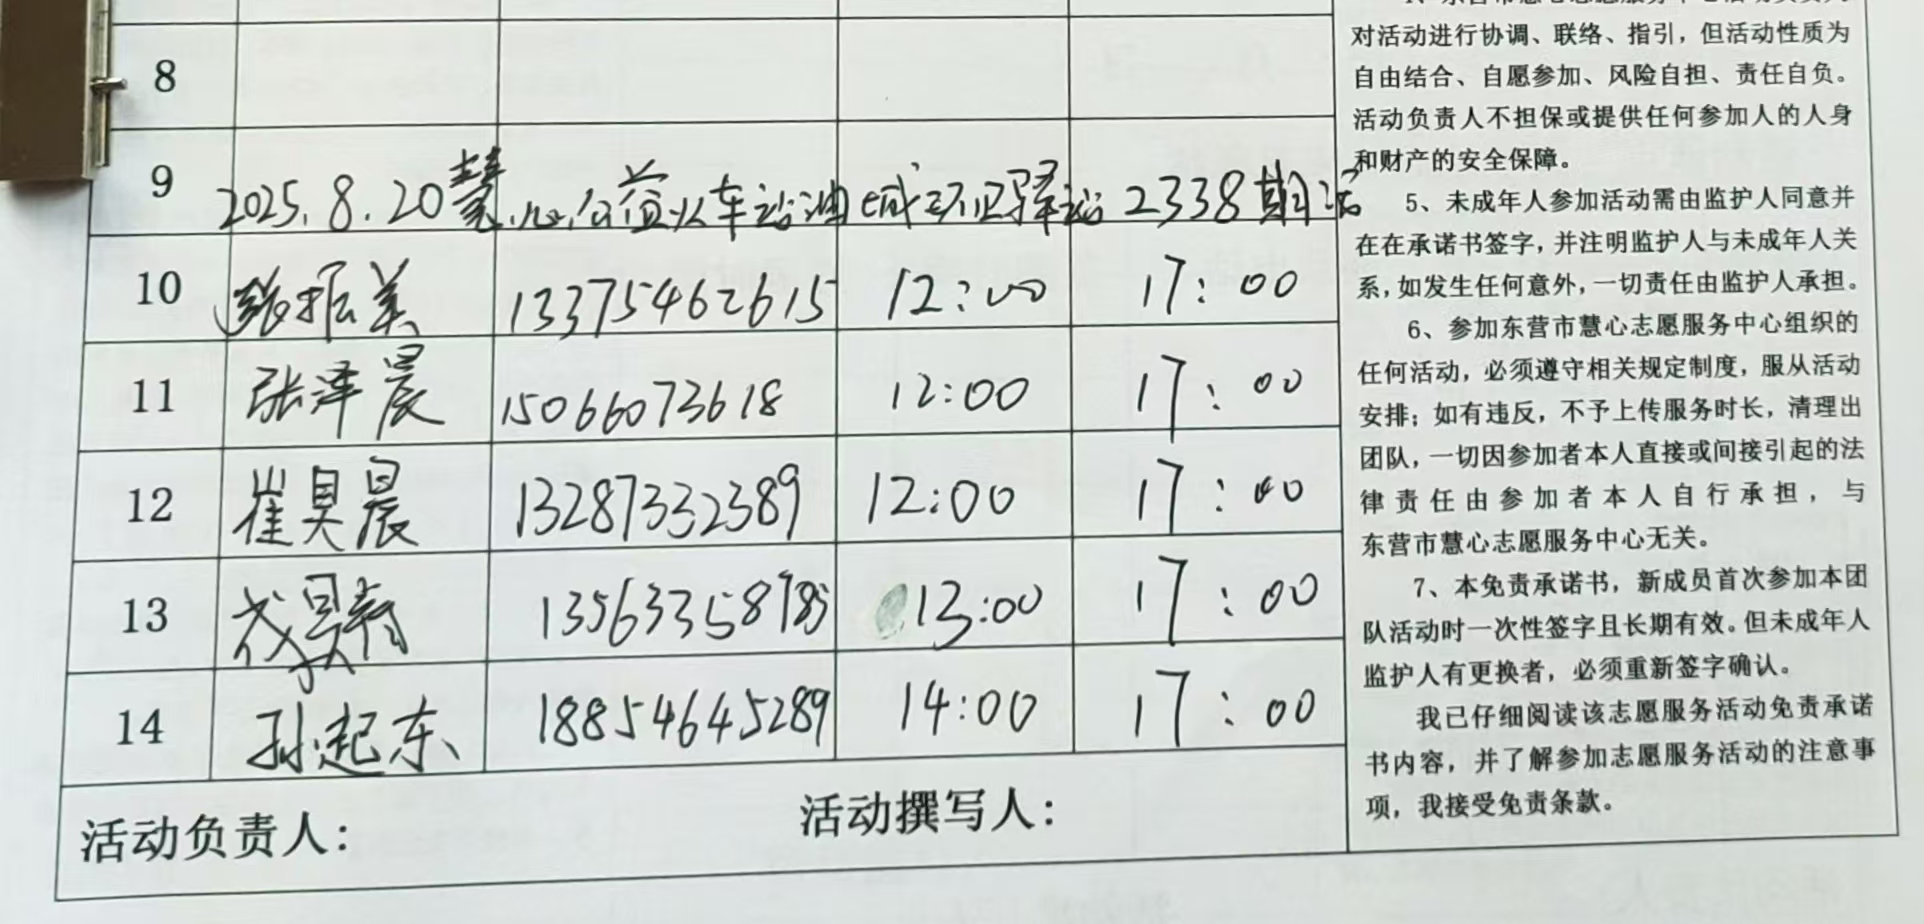 8
9 2025.8.20慧心公益火车站油城环卫驿站2338期活
10 张振美 13375462615 12:00 17:00
11 张泽晨 15066073618 12:00 17:00
12 崔昊晨 13287332389 12:00 17:00
13 13563358785 13:00 17:00
14 孙起东 18854645289 14:00 17:00
活动负责人： 活动撰写人：
对活动进行协调、联络、指引，但活动性质为
自由结合、自愿参加、风险自担、责任自负。
活动负责人不担保或提供任何参加人的人身
和财产的安全保障。
5、未成年人参加活动需由监护人同意并
在在承诺书签字，并注明监护人与未成年人关
系，如发生任何意外，一切责任由监护人承担。
6、参加东营市慧心志愿服务中心组织的
任何活动，必须遵守相关规定制度，服从活动
安排；如有违反，不予上传服务时长，清理出
团队，一切因参加者本人直接或间接引起的法
律责任由参加者本人自行承担，与
东营市慧心志愿服务中心无关。
7、本免责承诺书，新成员首次参加本团
队活动时一次性签字且长期有效。但未成年人
监护人有更换者，必须重新签字确认。
我已仔细阅读该志愿服务活动免责承诺
书内容，并了解参加志愿服务活动的注意事
项，我接受免责条款。